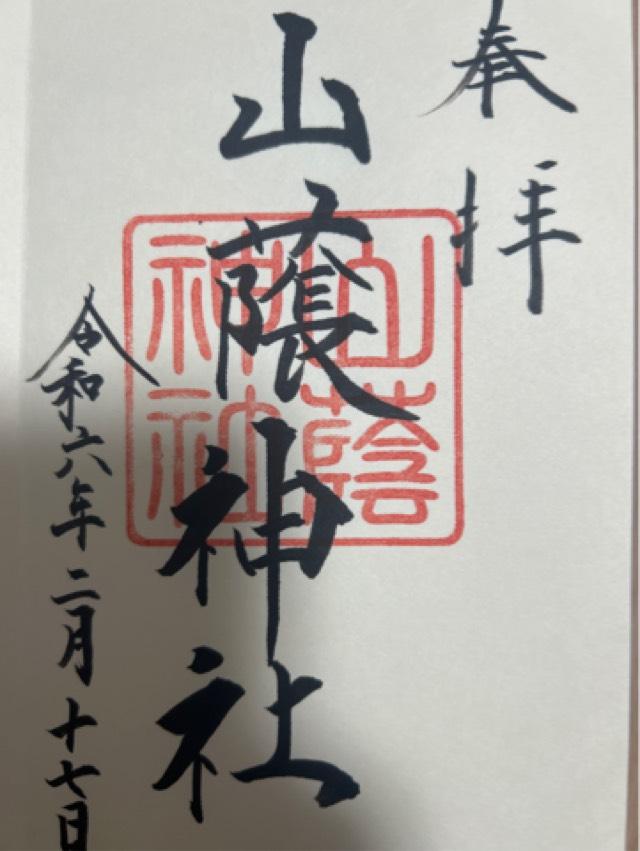 奉拝
山蔭神社
山蔭神社
令和六年二月十七日